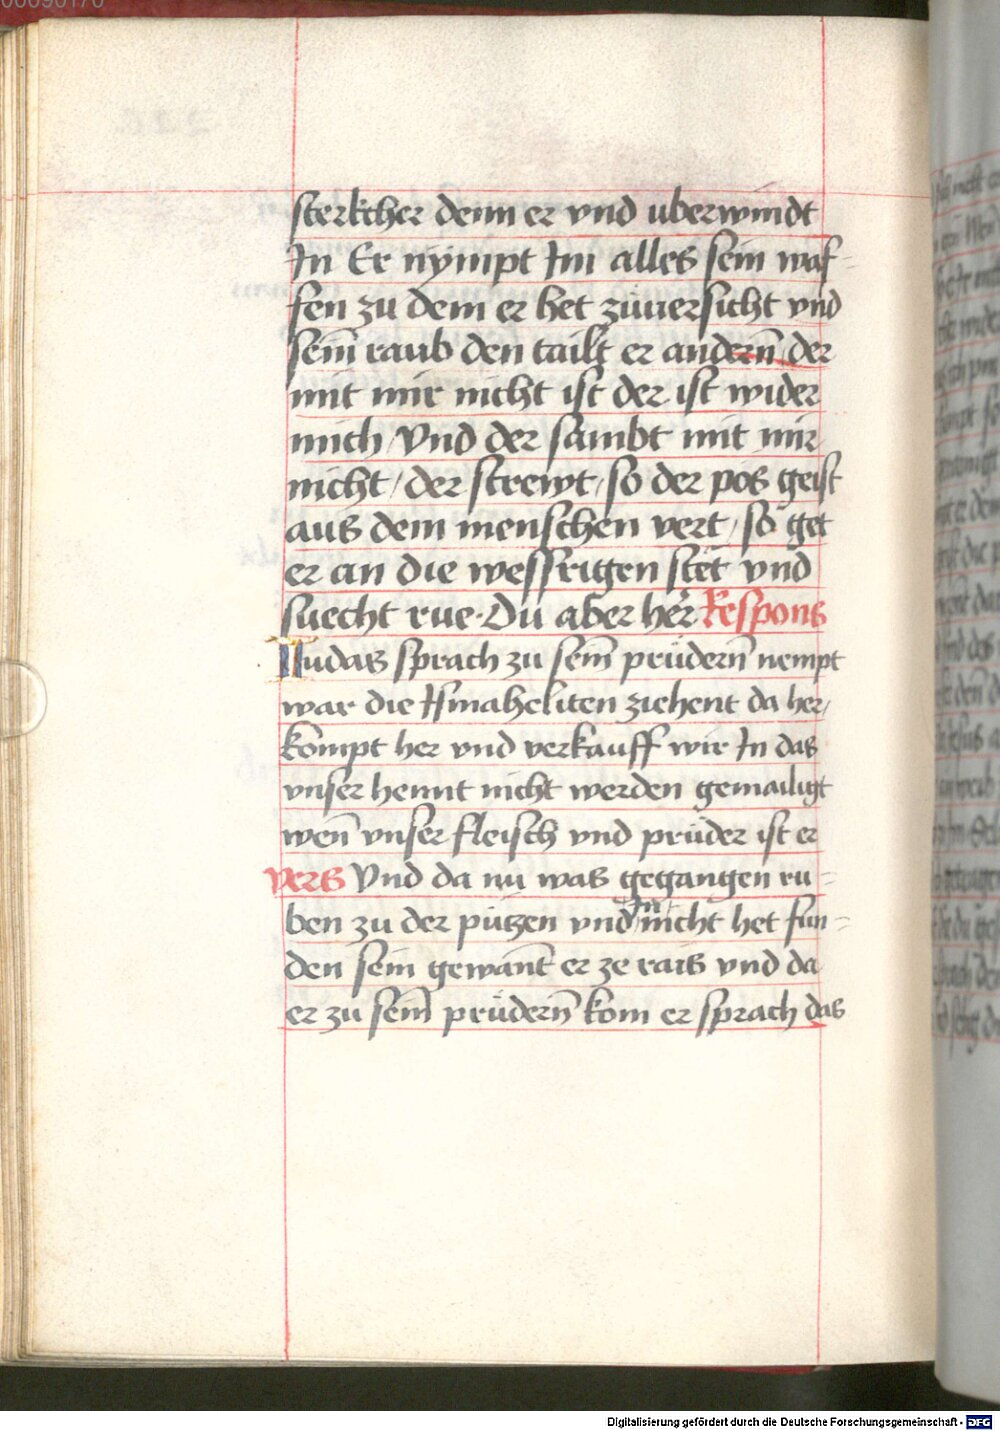 00090170
sterkcher denn er vnd uberwindt
In Er nympt Im alles sein waf-
fen zu dem er het züuersicht vnd
sein̄ raub den tailt er andern̄ der
mit mir nicht ist der ist wider
mich / Vnd der sambt mit mir
nicht / der strewt / so der pos geist
aus dem menschen vert / so get
er an die wessrigen stet vnd
suecht rue · Du aber her Respons
Iudas sprach zu sein̄ prüdern̄ nempt
war die Ismaheliten ziehent da her /
kompt her vnd verkauff wir In das
vnser hennt nicht werden gemailigt
wen̄ vnser fleisch vnd prüder ist er
vers Vnd da nu was gegangen ru-
ben zu der pützen vnd In nicht het fun-
den sein gewant er ze rais vnd da
er zu sein̄ prüdern̄ kom er sprach das
Digitalisierung gefördert durch die Deutsche Forschungsgemeinschaft - DFG